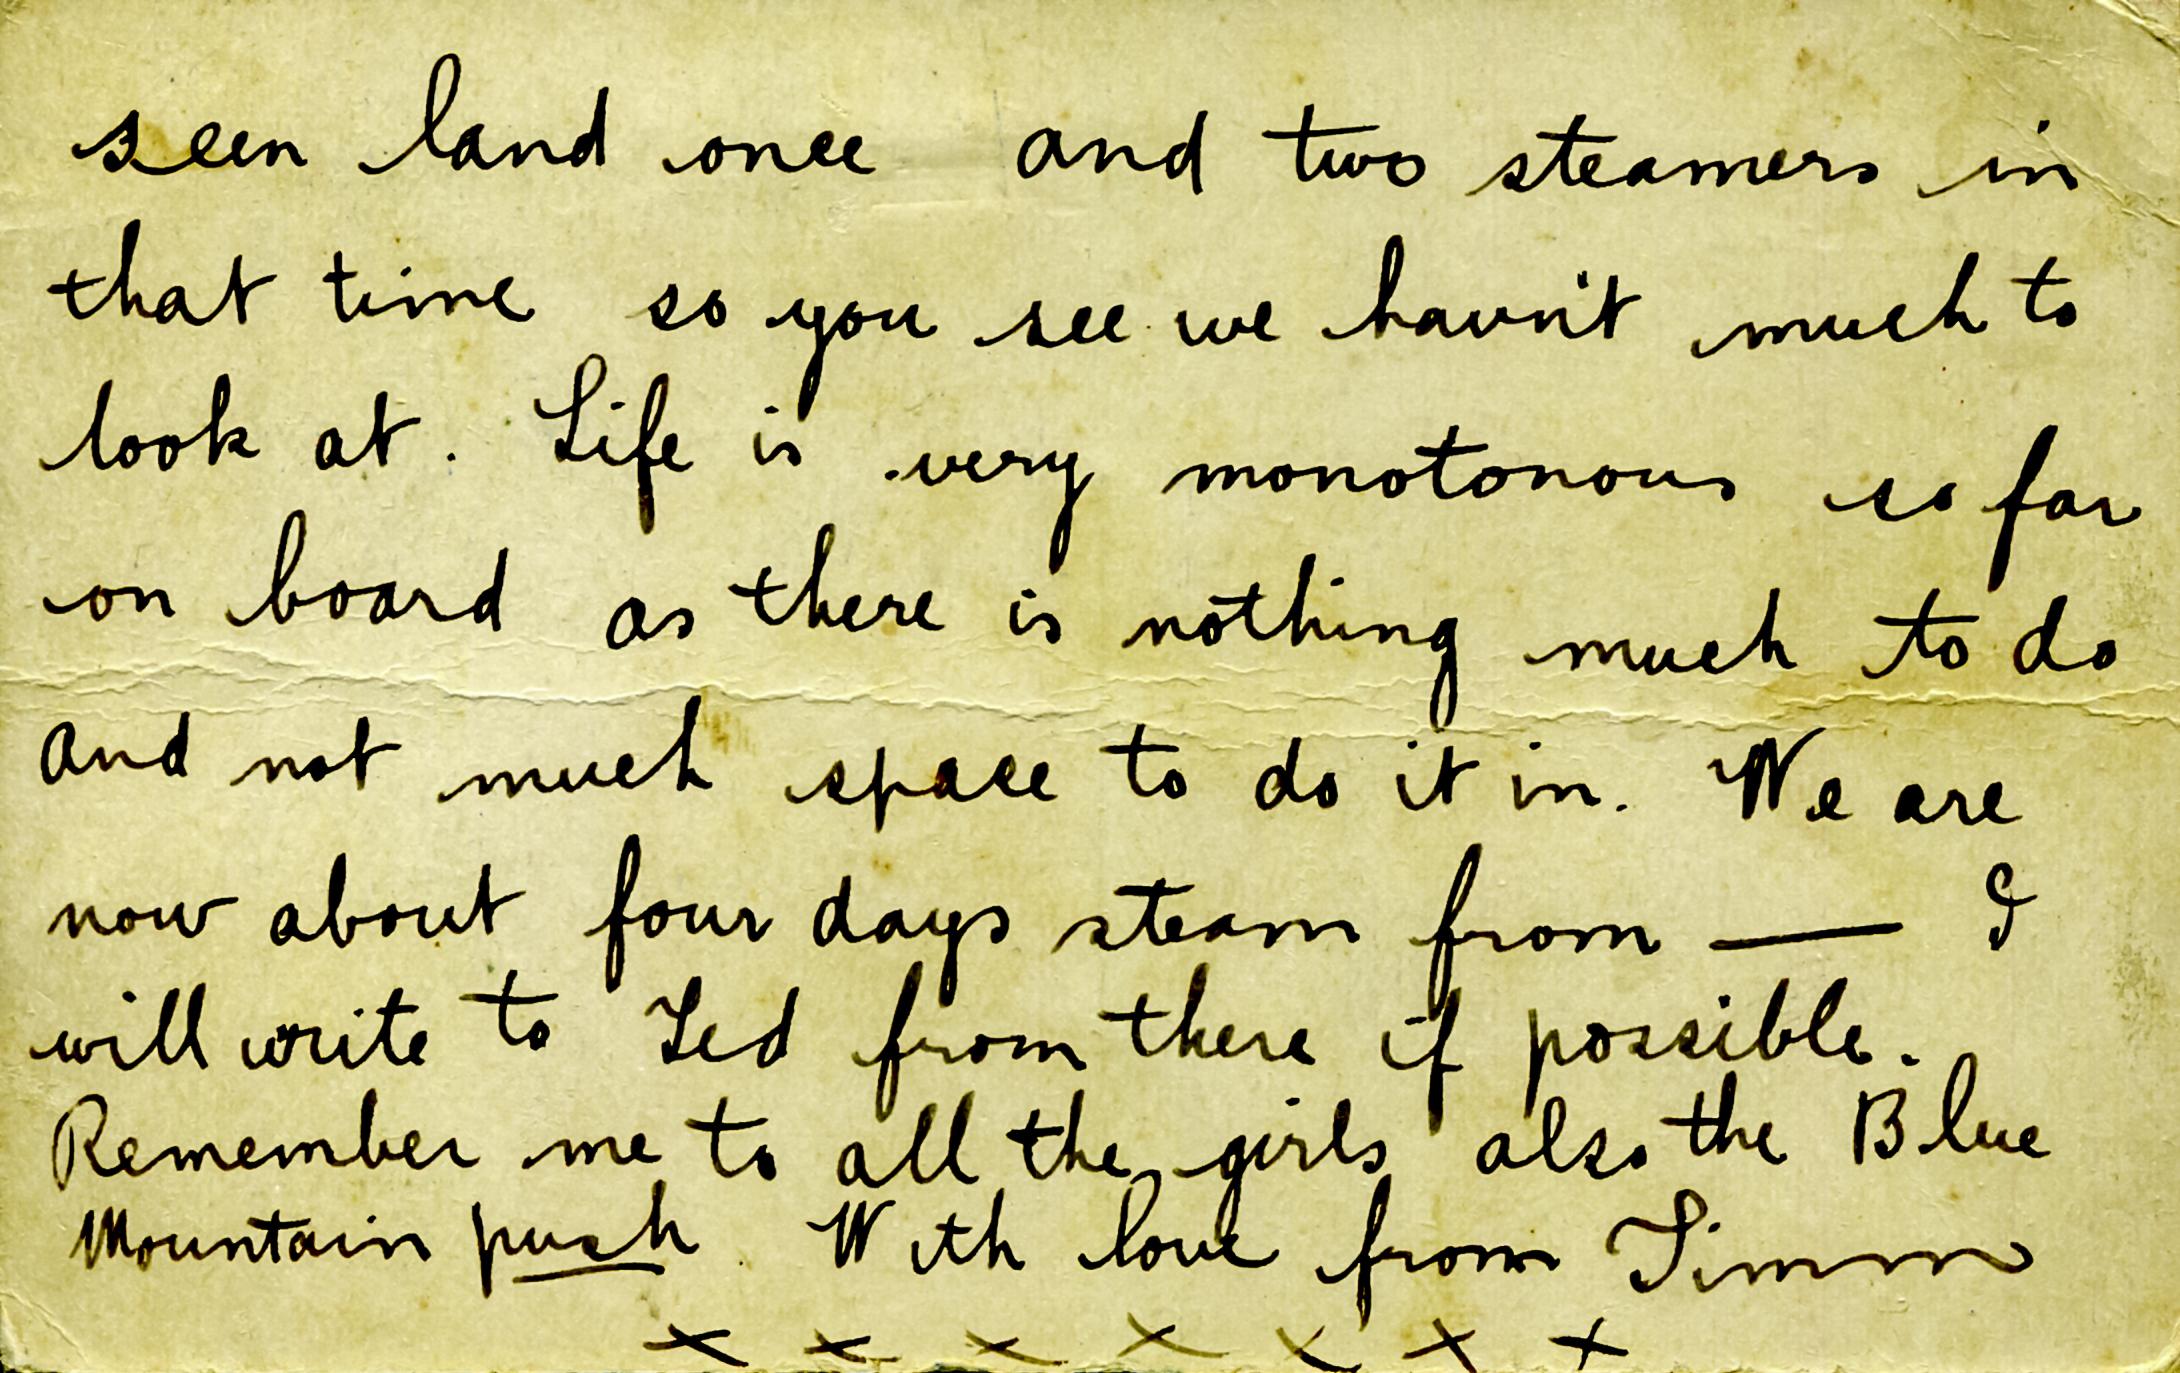 seen land once and two steamers in
that time so you see we havn't much to
look at. Life is very monotonous so far
on board as there is nothing much to do
and not much space to do it in. We are
now about four days steam from — I
will write to Ted from there if possible.
Remember me to all the girls also the Blue
Mountain push. With love from Timm
x x x x x x x